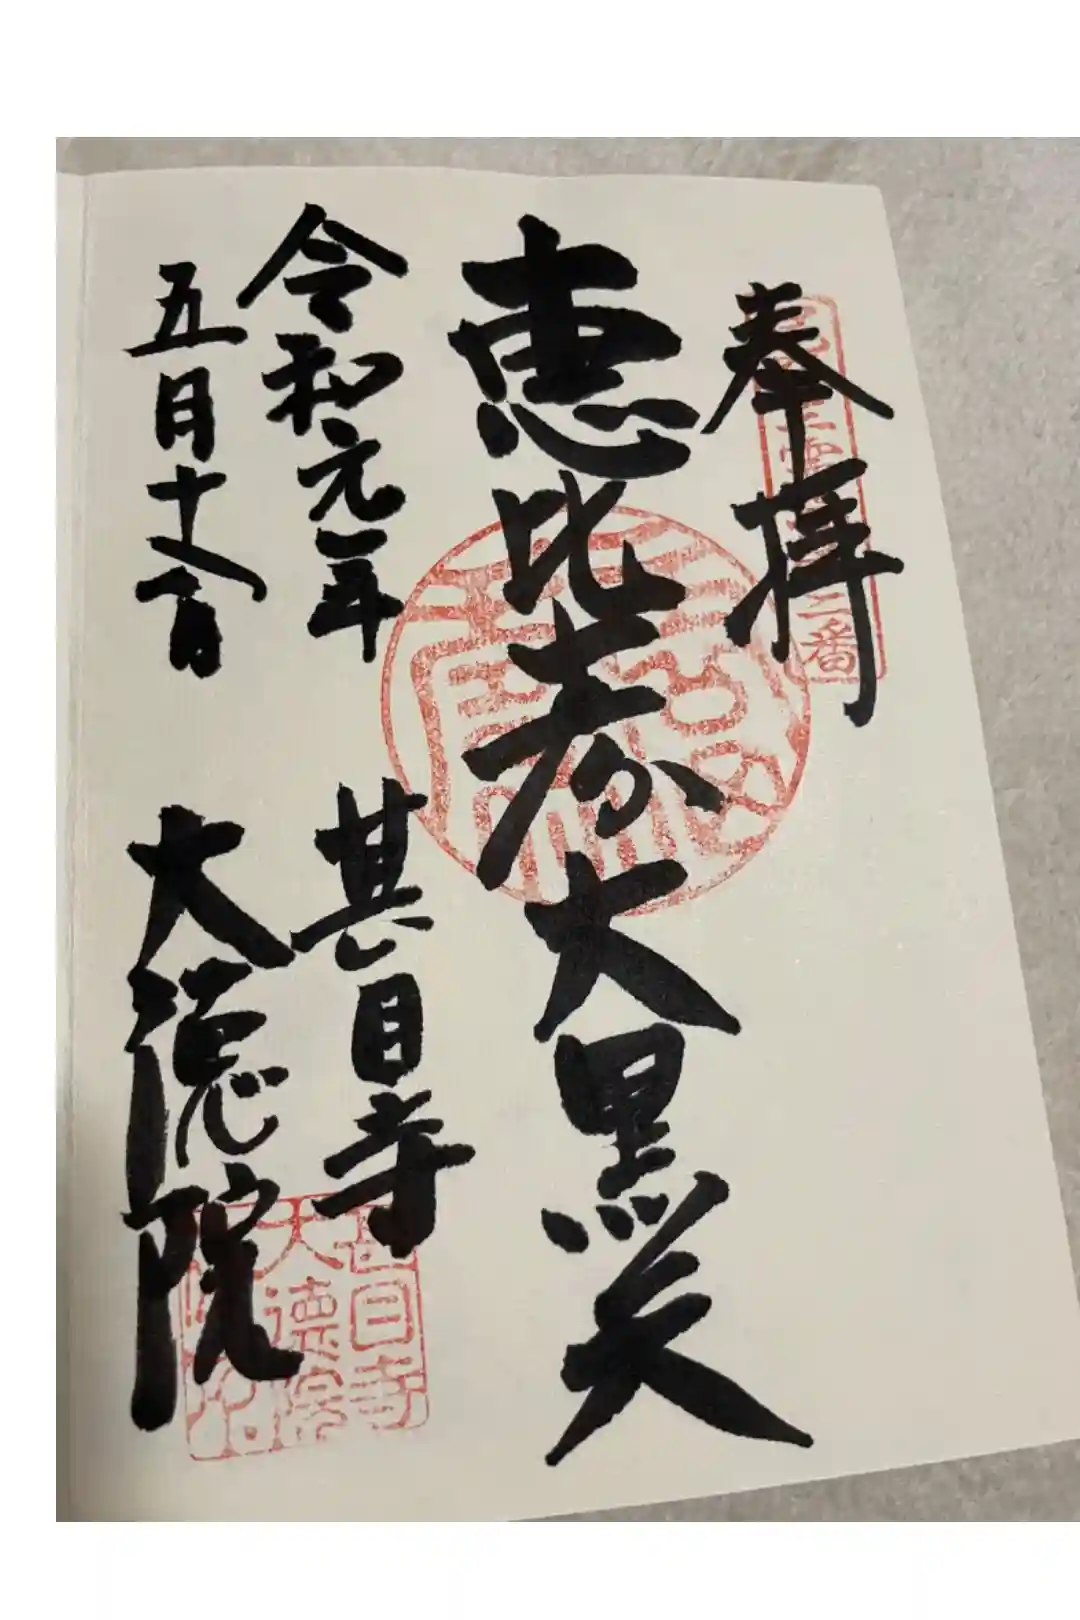 奉拝
恵比寿大黒天
令和元年
五月十八日
甚目寺
大徳院
甚目寺
大徳院